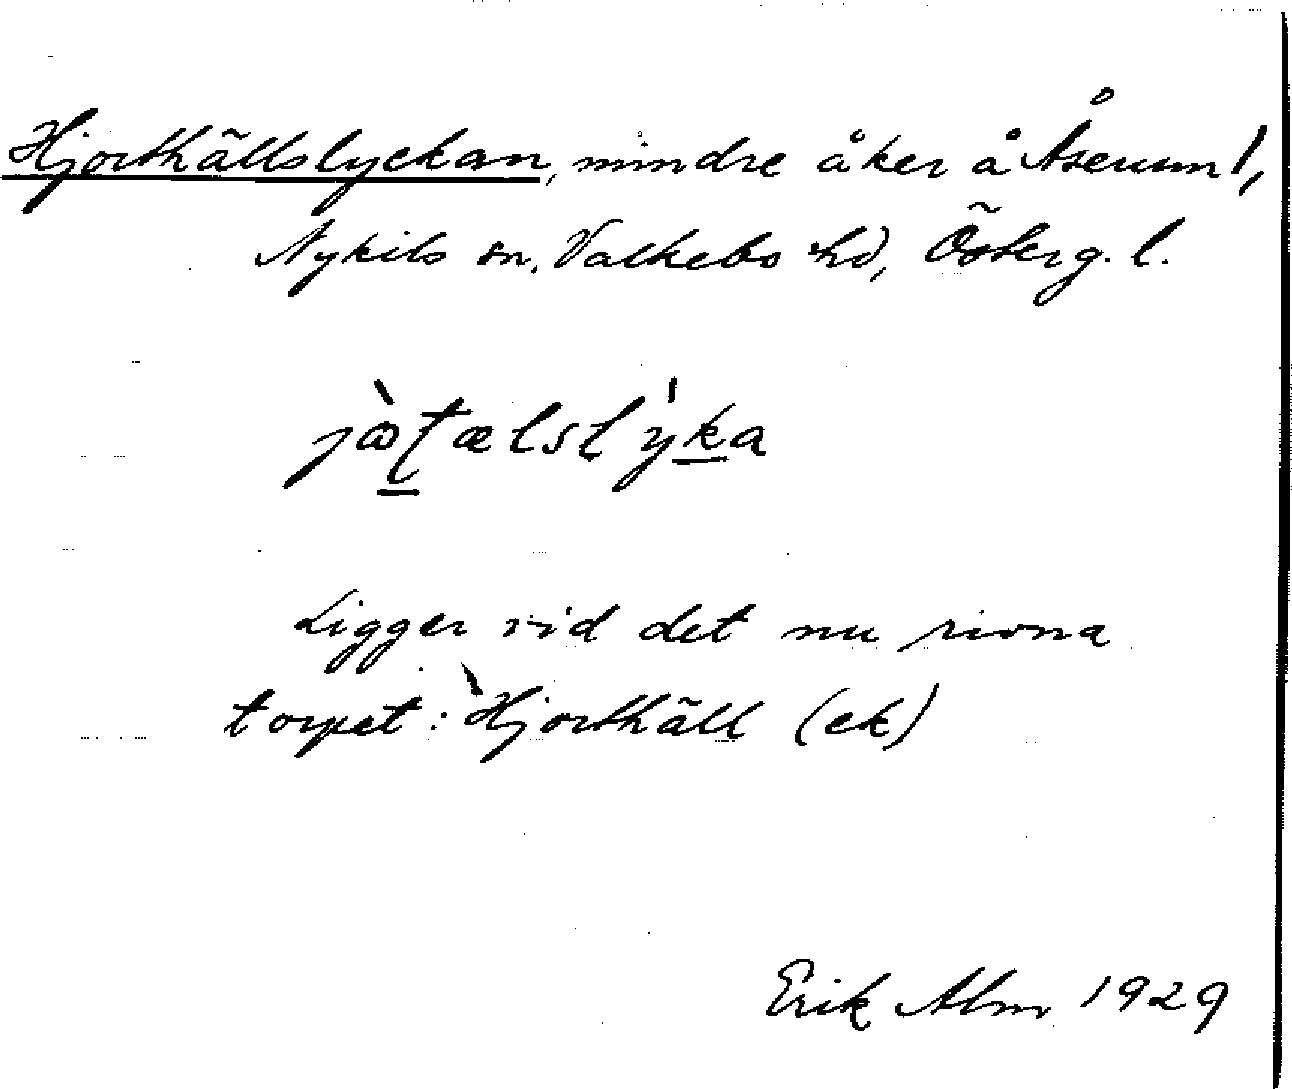 Hjorthällslyckan, mindre åker å Åserum 1,
Nykils sn, Valkebo hd, Österg. l.
Ligger vid det nu rivna
torpet: Hjorthäll (ek)
Erik Alm 1929